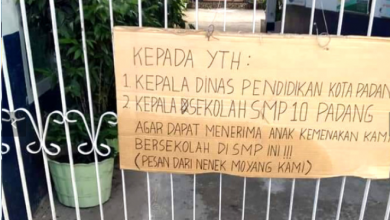 KEPADA YTH :
1 KEPALA DINAS PENDIDIKAN KOTA PADAN
2 KEPALA SEKOLAH SMP 10 PADANG
AGAR DAPAT MENERIMA ANAK KEMENAKAN KAMI
BERSEKOLAH DI SMP INI !!!
(PESAN DARI NENEK MOYANG KAMI)